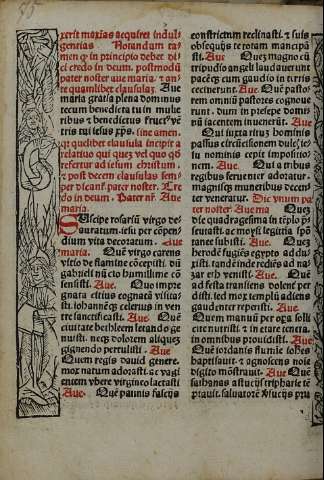 xerit maximas acquiret indul
gentias Notandum ta
men ꝙ in principio debet di
ci credo in deum. postmodū
pater noster aue maria. ⁊ an
te quamlibet clausulaȝ. Aue
maria gratia plena dominus
tecum benedicta tu in mulie
ribus ⁊ benedictus fructꝰ vē
tris tui iesus xp̄s. sine amen.
ꝙ quelibet clausula incipit a
relatiuo qui quez vel quo ꝙd
refertur ad iesum christum.
⁊ post decem clausulas sem
per dicant pater noster. Cre
do in deum. Pater nr̄. Aue
maria.
Suscipe rosariū virgo de
auratum. iesu per cōpen
dium vita decoratum. Aue
maria. Quē virgo carens
vitio de flamine cōcepisti. dū
gabrieli nūcio humillime cō
sensisti. Aue. Quo impre
gnata citius cognatā visitas
ti. iohannem celerius in ven
tre sanctificasti. Aue. Quē
ciuitate bethleem letando ge
nuisti. necꝙ dolorem aliqueȝ
pignendo pertulisti. Aue
Quem regis dauid genere.
mox natum adorasti. ac vagi
entem vbere virgineo lactasti
Aue. Quē pannis fascijs
constrictum reclinasti. ⁊ suis
obsequijs te totam mancipa
sti. Aue Queȝ magno cū
tripudio angeli laudauerunt
paceꝙ cum gaudio in terris
cecinerunt. Aue. Quē pasto
rem omniū pastores cognoue
runt. dum in presepe domi
nū iacentem inuenerūt. Aue
Qui iuxta ritus hominis
passus circūcisionem dulc̄ ie
su nominis cepit impositio
nem. Aue. Qui a tribus
regibus feruenter adoratur.
magnisꝙ muneribus decen
ter veneratur. Dic vnum pa
ter noster Aue ma Queȝ
die quadragesima in tēplo p̄
seutasti. ac moysi legitia spō
ranee subisti. Aue. Queȝ
herode fugiēs egypto adduȝ
xisti. tandē inde rediēs ad na
zareth venisti. Aue. Quē
ad festa transiens dolens per
didisti. sed mox templū adiens
gaudenter reperisti. Aue.
Quem manuū per opa solli
cite nutristi. ⁊ in etate tenera.
in omnibus prouidisti. Aue
Quē iordanis flumie iohēs
baptisauit. ⁊ agnoscens nois
digito mōstrauit. Aue Quē
sathanas astucijs tripharie tē
ptauit.